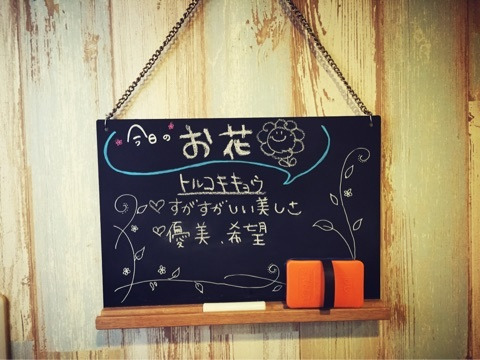 今日の お花
トルコキキョウ
♡すがすがしい美しさ
♡優美、希望